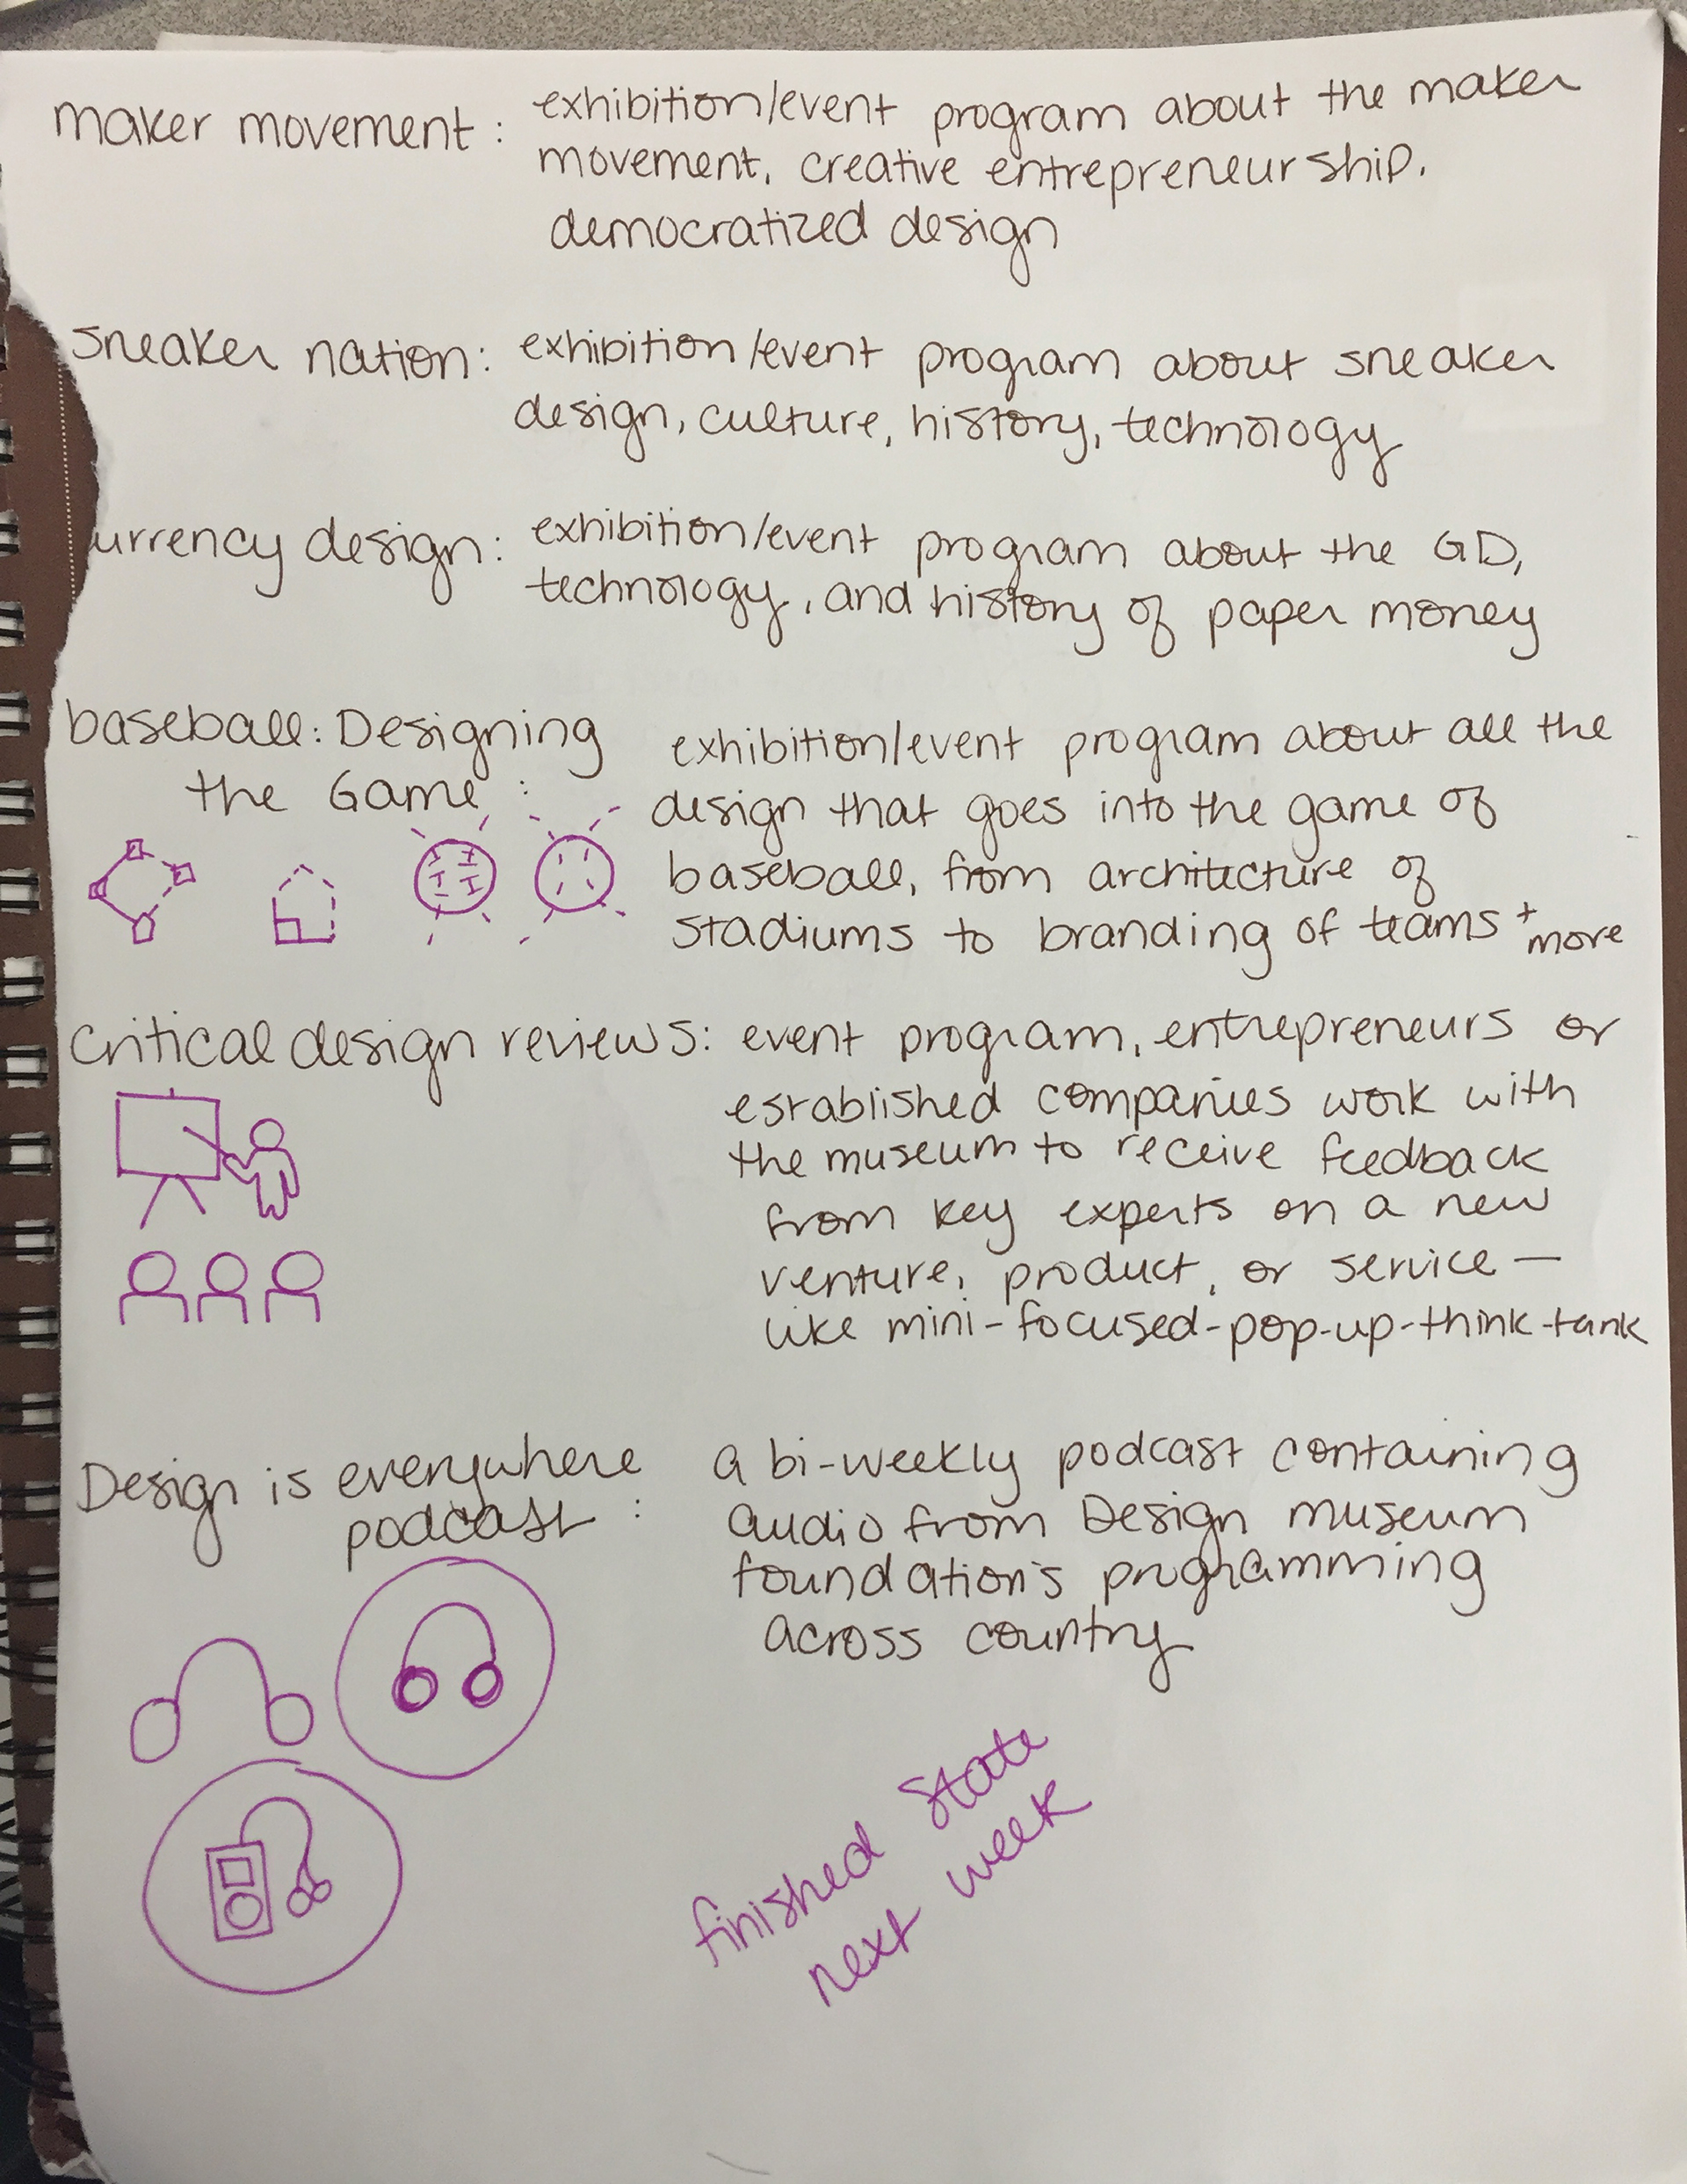 maker movement: exhibition/event program about the maker
movement, creative entrepreneurship,
democratized design
sneaker nation: exhibition/event program about sneaker
design, culture, history, technology
urrency design: exhibition/event program about the GD,
technology, and history of paper money
baseball: Designing
the Game:
exhibition/event program about all the
design that goes into the game of
baseball, from architecture of
stadiums to branding of teams + more
Critical design reviews: event program, entrepreneurs or
established companies work with
the museum to receive feedback
from key experts on a new
venture, product, or service —
like mini-focused-pop-up-think-tank
Design is everywhere
podcast:
a bi-weekly podcast containing
audio from Design museum
foundation's programming
across country
finished state
next week